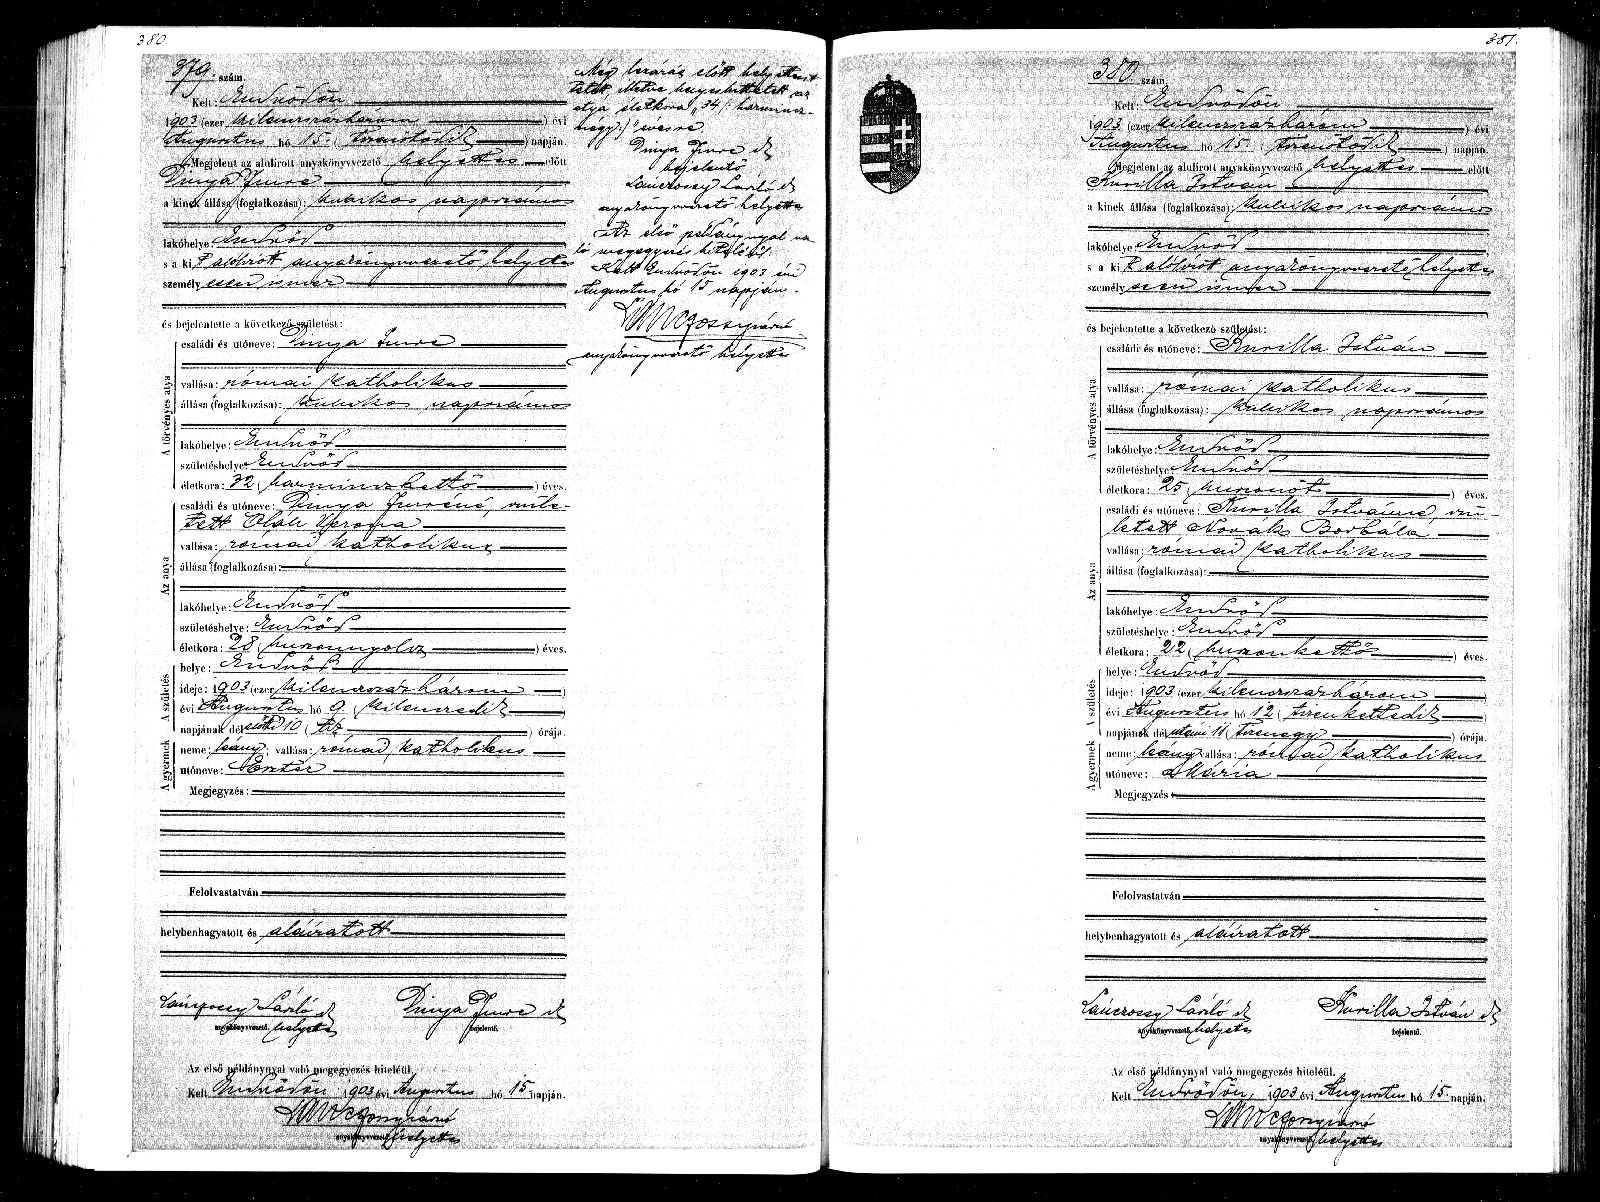 380.
379. szám.
Kelt: Endrődön
1903 (ezer kilenczszázhárom) évi
Augusztus hó 15. (tizenötödik) napján.
Megjelent az alulirott anyakönyvvezető helyettes előtt
Dinya Imre
a kinek állása (foglalkozása): kubikos napszámos
lakóhelye: Endrőd
s a kit alólirott anyakönyvvezető helyettes
személyesen ismer
és bejelentette a következő születést:
A törvényes atya
családi és utóneve: Dinya Imre
vallása: római katholikus
állása (foglalkozása): kubikos napszámos
lakóhelye: Endrőd
születéshelye: Endrőd
életkora: 32 (harminczkettő) éves.
Az anya
családi és utóneve: Dinya Imréné, szüle-
tett Oláh Verona
vallása: római katholikus
állása (foglalkozása):
lakóhelye: Endrőd
születéshelye: Endrőd
életkora: 28 (huszonnyolcz) éves.
A születés
helye: Endrőd
ideje: 1903 (ezer kilenczszázhárom)
évi Augusztus hó 9. (kilenczedik)
napjának dél előtti 10 (tiz) órája.
A gyermek
neme: leány; vallása: római katholikus
utóneve: Eszter
Megjegyzés:
Felolvastatván
helybenhagyatott és aláiratott
Lánczossy László sk Dinya Imre sk
anyakönyvvezető helyettes bejelentő.
Az első példánynyal való megegyezés hiteléül.
Kelt Endrődön, 1903 évi Augusztus hó 15. napján.
anyakönyvvezető helyettes
Még lezárás előtt helyesbit
tetett, illetve kiegészittetett az
atya életkora „34 (harmincz-
négy)" évesre
Dinya Imre sk
bejelentő
Lánczossy László sk
anyakönyvvezető helyettes
Az első példánynyal va-
ló megegyezés hiteléül.
Kelt Endrődön 1903 évi
Augusztus hó 15 napján.
anyakönyvvezető helyettes
381.
380. szám.
Kelt: Endrődön
1903. (ezer kilenczszázhárom) évi
Augusztus hó 15. (tizenötödik) napján.
Megjelent az alulirott anyakönyvvezető helyettes előtt
Kurilla István
a kinek állása (foglalkozása): kubikos napszámos
lakóhelye: Endrőd
s a kit alólirót anyakönyvvezető helyettes
személyesen ismer
és bejelentette a következő születést:
A törvényes atya
családi és utóneve: Kurilla István
vallása: római katholikus
állása (foglalkozása): kubikos napszámos
lakóhelye: Endrőd
születéshelye: Endrőd
életkora: 25 (huszonöt) éves.
Az anya
családi és utóneve: Kurilla Istvánné, szü-
letett Novák Borbála
vallása: római katholikus
állása (foglalkozása):
lakóhelye: Endrőd
születéshelye: Endrőd
életkora: 22 (huszonkettős) éves.
A születés
helye: Endrőd
ideje: 1903 (ezer kilenczszázhárom)
évi Augusztus hó 12 (tizenkettedik)
napjának dél utáni 11 (tizenegy) órája.
A gyermek
neme: leány vallása: római katholikus
utóneve: Mária
Megjegyzés
Felolvastatván
helybenhagyatott és aláiratott
Lánczossy László sk Kurilla István sk
anyakönyvvezető helyettes bejelentő.
Az első példánynyal való megegyezés hiteléül.
Kelt Endrődön, 1903 évi Augusztus hó 15. napján.
anyakönyvvezető helyettes